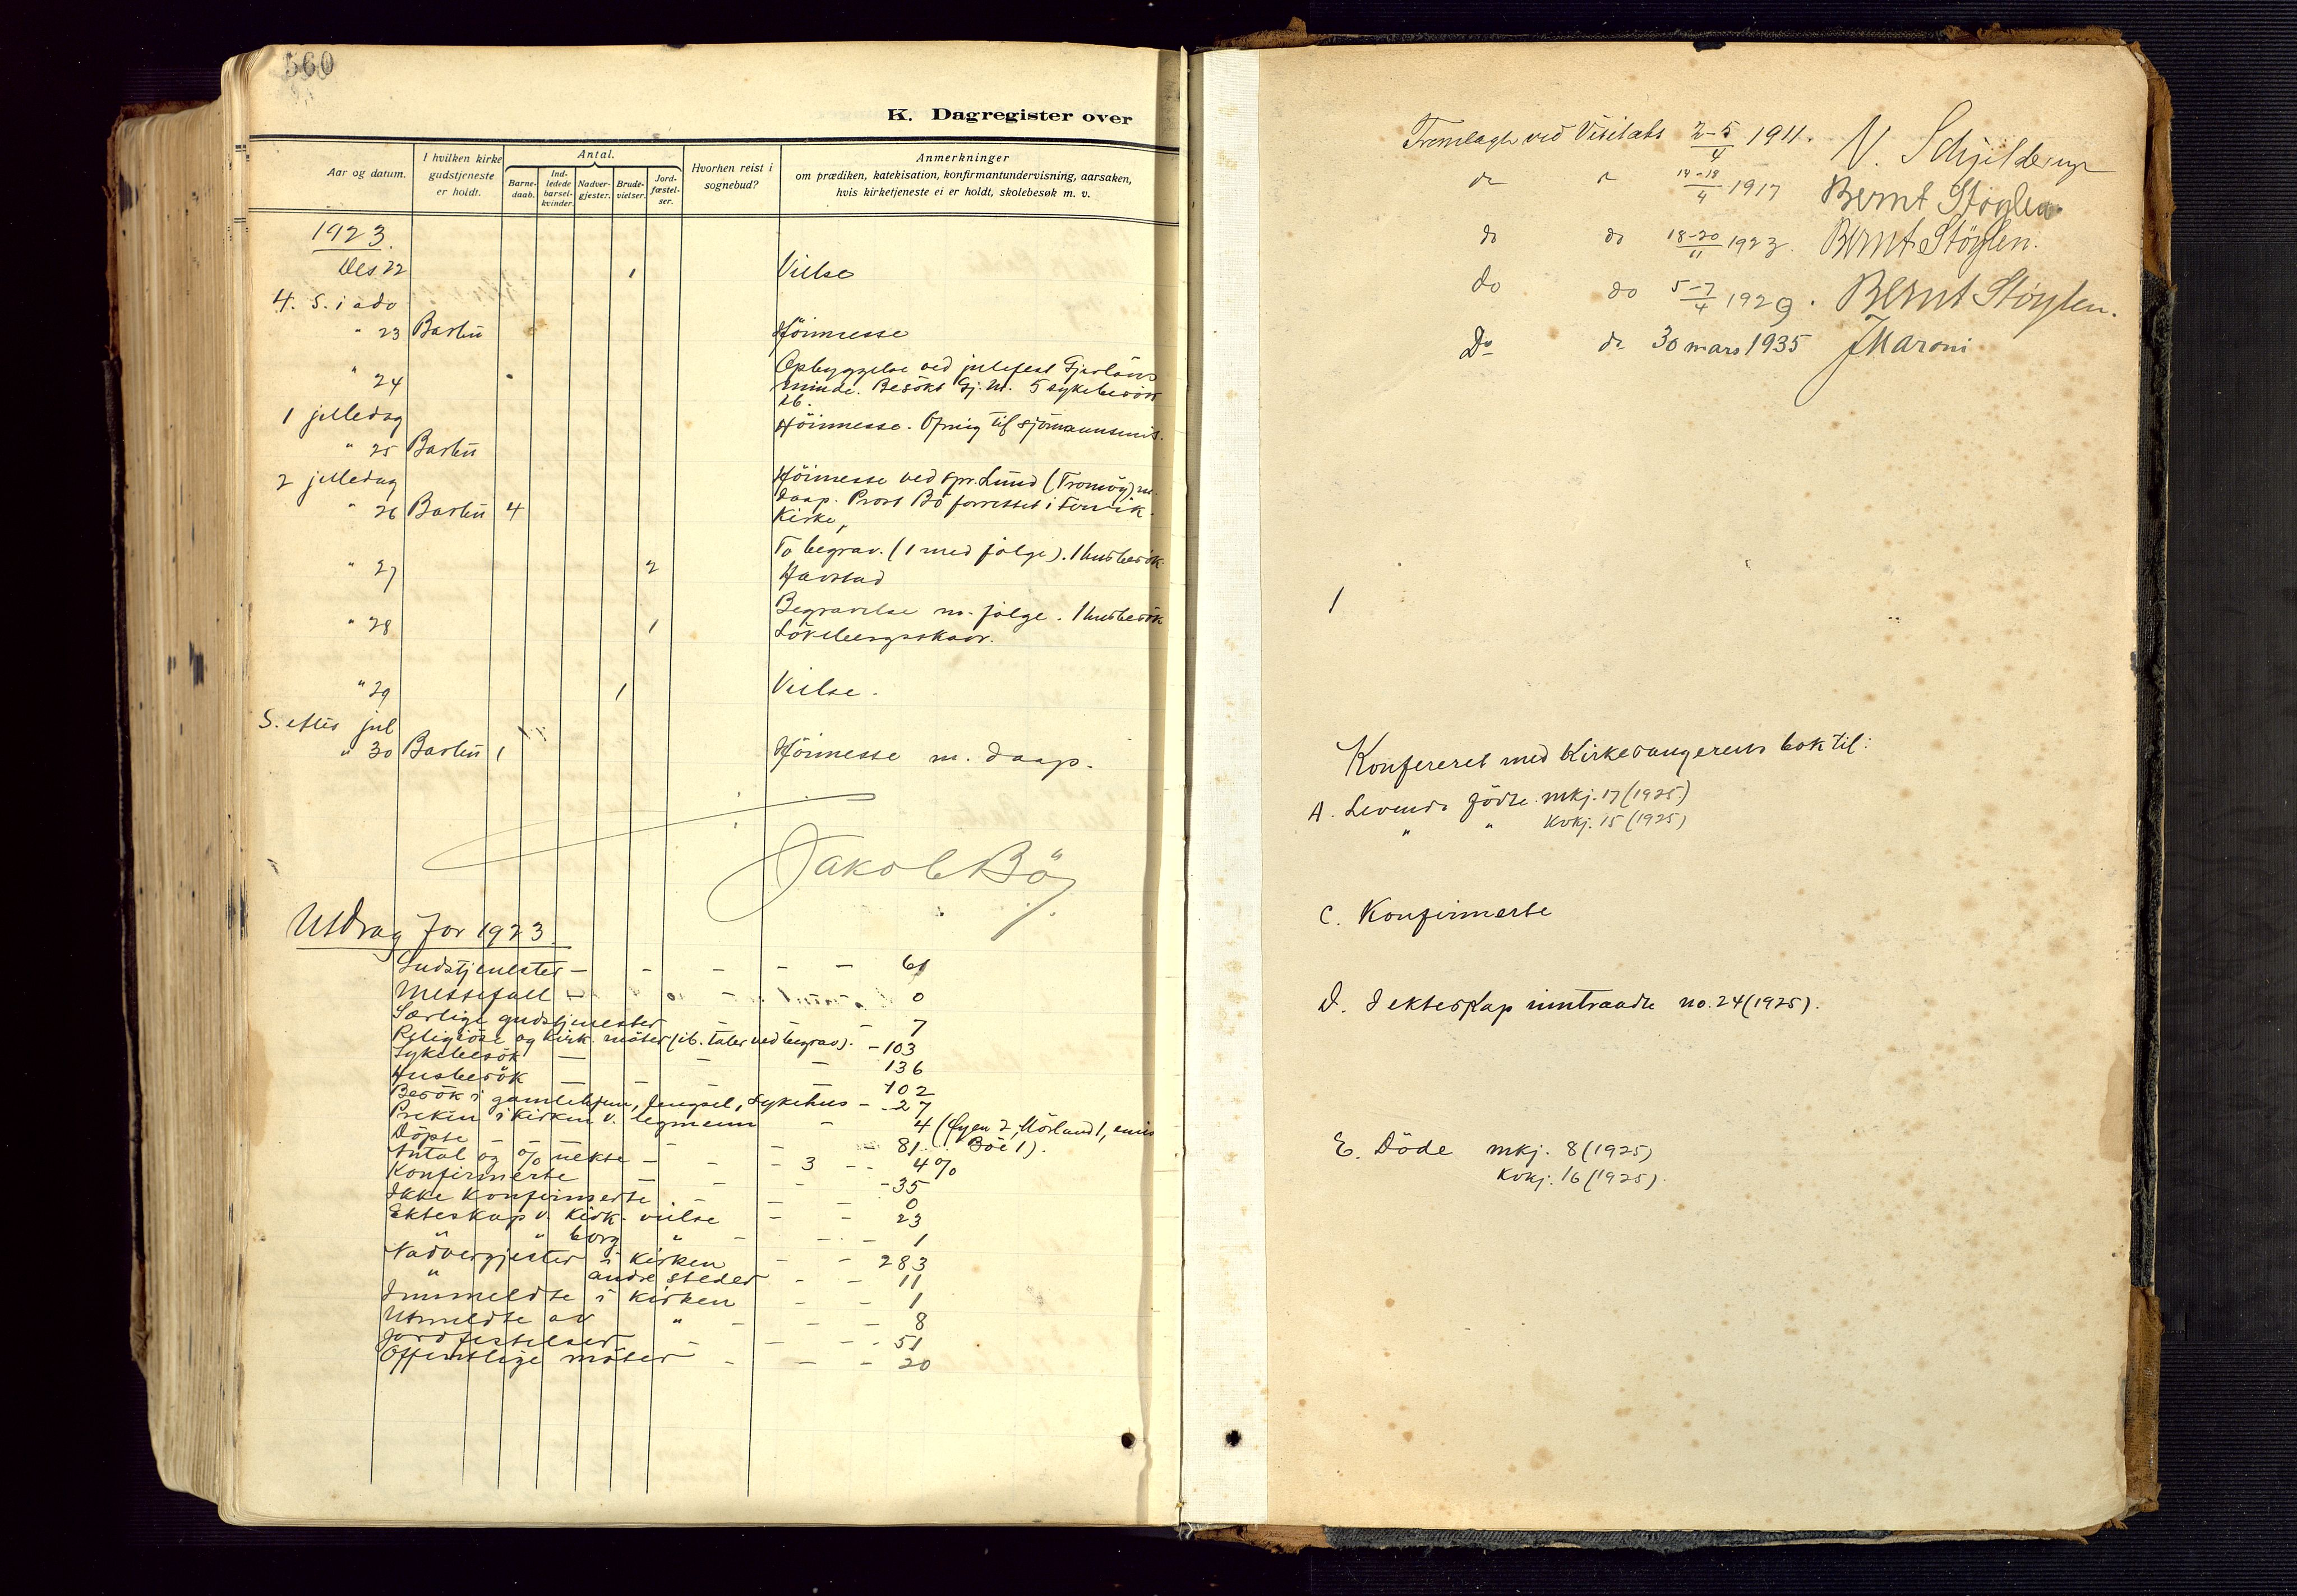 560
K. Dagregister over
Aar og datum.
I hvilken kirke
gudstjeneste
er holdt.
Antal.
Barne-
daab.
Ind-
ledede
barsel-
kvinder.
Nadver-
gjester.
Brude-
vielser.
Jord-
fæstel-
ser.
Hvorhen reist i
sognebud?
Anmerkninger
om prædiken, katekisation, konfirmantundervisning, aarsaken,
hvis kirketjeneste ei er holdt, skolebesøk m. v.
1923.
Des 22 1 Vielse
4. S. i adv
" 23 Barbu Höimesse
" 24 Opbyggelse ved julefest Gjerløws
minde. Besökt Gj. M. 5 sykebesök
26.
1 juledag Höimesse. Ofring til sjömannsmis.
" 25 Barbu
2 juledag Höimesse ved spr. Lund (Tromöy) m.
" 26 Barbu 4 daap. Prost Bö forrettet i
Kirke,
" 27 2 To begrav. (1 med følge). 1 husbesök
Havstad
" 28 1 Begravelse m. følge. 1 husbesök
" 29 1 Vielse.
S. efter jul
" 30 Barbu 1 Höimesse m. daap.
Jakob Bö
Utdrag for 1923
Gudstjenester – – – – – 61
Messefall – – 0
Særlige gudstjenester – – – 7
Religiöse og kirk. möter (ib. taler ved begrav). – 103
Sykebesök – – 136
Husbesök – – – – 102
Besök i gamlehjem, fengsel, sykehus – 27
Preken i kirken v. legmenn – 4 (Øyen 2, Mörland 1, emis
Döpte – – – – 81 Böe 1).
Antal og % nekte – – – 3 – – 4%
Konfirmerte – – – 35
Ikke konfirmerte – – – 0
Ekteskap v. kirk. vielse – – 23
" " borg " – – – 1
Nadvergjester i kirken – – 283
" andre steder – – 11
Innmeldte i kirken – – 1
Utmeldte av " – – – 8
Jordfestelser – – – – 51
Offentlige möter – – – 20
Fremlagt ved Visitats 2-5/4 1911. N. Schjelderup
do do 14-18/4 1917 Bernt Støylen
do do 18-20/11 1923. Bernt Støylen.
do do 5-7/4 1929. Bernt Støylen.
Do do 30 mars 1935 J Maroni
1
Konfereret med Kirkesangerens bok til:
A. Levende födte. mkj. 17 (1925)
" " kvkj. 15 (1925)
C. Konfirmerte
D. I ekteskap inntraadte no. 24 (1925).
E. Döde mkj. 8 (1925)
kvkj. 16 (1925).